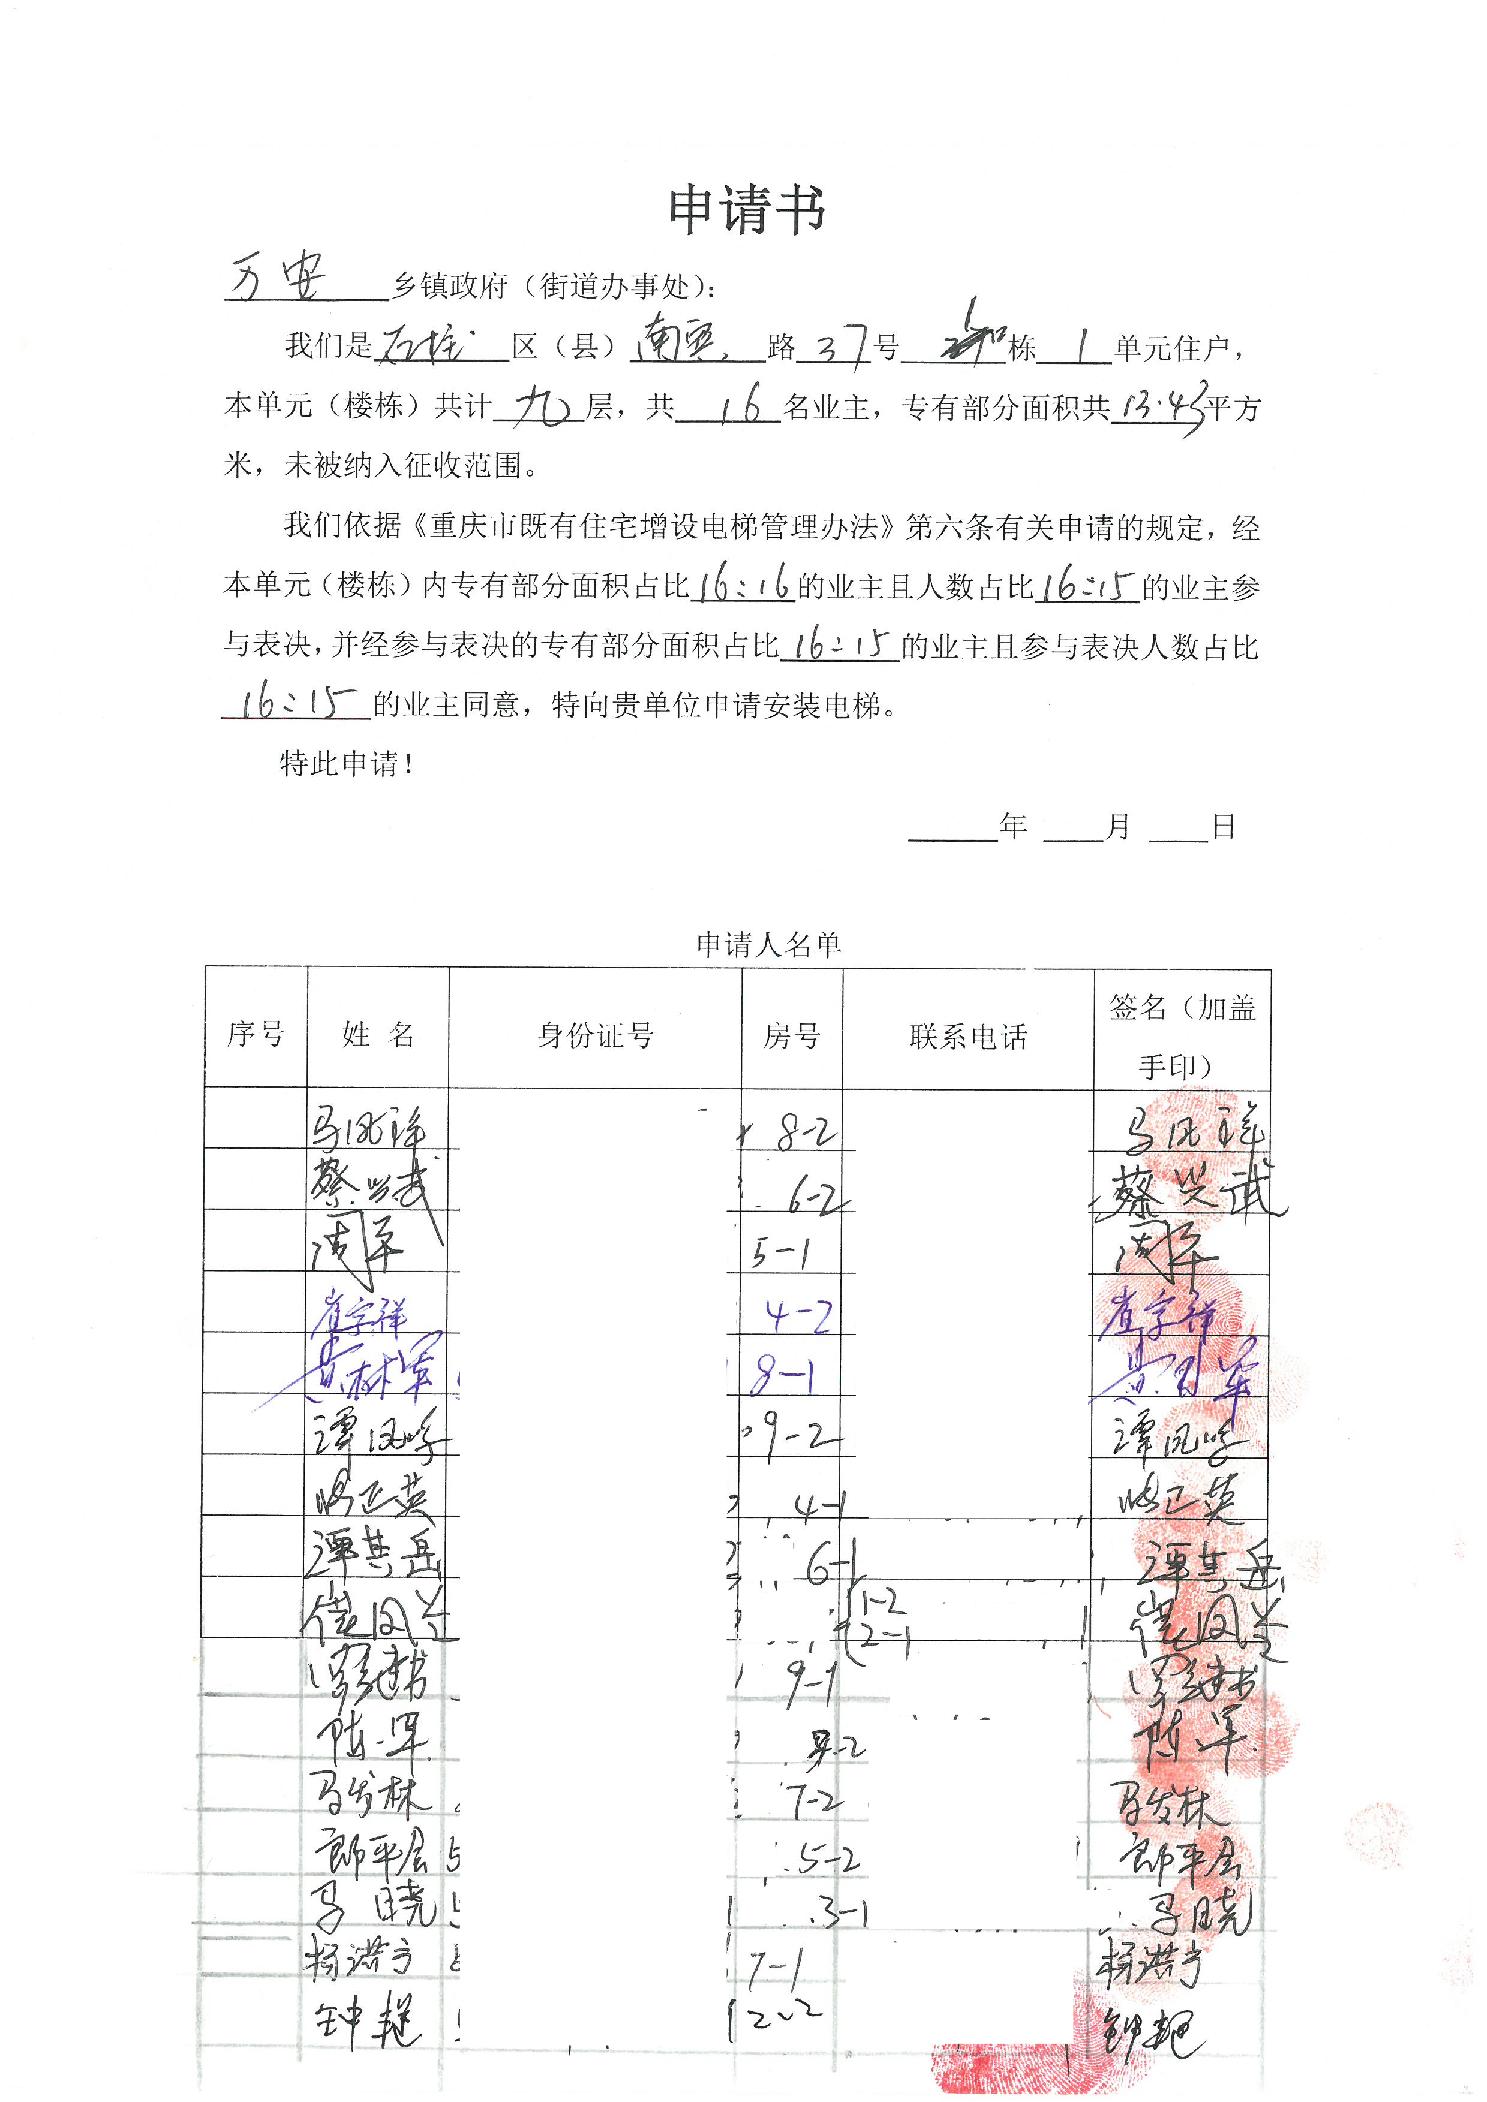 申请书
万安 乡镇政府（街道办事处）：
我们是 石柱 区（县） 南宾 路 37 号 栋 1 单元住户，
本单元（楼栋）共计 九 层，共 16 名业主，专有部分面积共 13.43 平方
米，未被纳入征收范围。
我们依据《重庆市既有住宅增设电梯管理办法》第六条有关申请的规定，经
本单元（楼栋）内专有部分面积占比 16:16 的业主且人数占比 16:15 的业主参
与表决，并经参与表决的专有部分面积占比 16:15 的业主且参与表决人数占比
16:15 的业主同意，特向贵单位申请安装电梯。
特此申请！
年 月 日
申请人名单
序号 姓 名 身份证号 房号 联系电话 签名（加盖手印）
8-2
蔡兴武 6-2 蔡兴武
周平 5-1 周平
崔宗祥 4-2 崔宗祥
黄林军 8-1
谭凤 9-2 谭凤
正英 4-1 正英
谭其岳 6-1 谭其岳
1-2
2-1
9-1
陈军 陈军
马发林 7-2 马发林
郎平 5-2 郎平
马晓 3-1 马晓
杨洪宁 7-1 杨洪宁
钟 2-2 钟